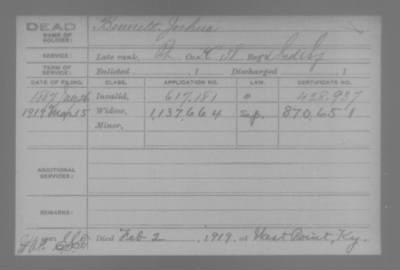 DEAD
NAME OF SOLDIER: Bennett, Joshua
SERVICE: Late rank, Pt Co. Reg't
TERM OF SERVICE: Enlisted , 1 Discharged , 1
DATE OF FILING. CLASS. APPLICATION NO. LAW. CERTIFICATE NO.
1887 Invalid, 617,181 428,937
1919 Mar 15 Widow, 1,137,664 870,651
Minor,
ADDITIONAL SERVICES:
REMARKS:
Died Feb 2, 1919, at West Point, Ky.